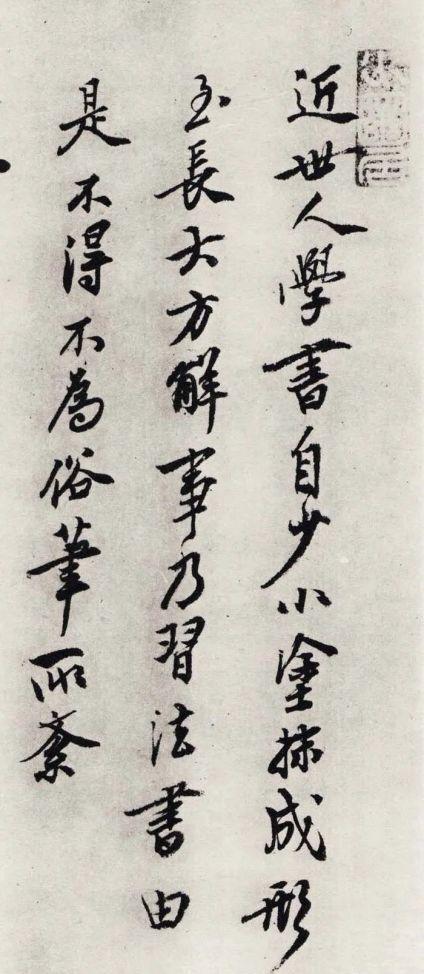 近世人學書自少小塗抹成形
至長大方解事乃習法書由
是不得不為俗筆所紊